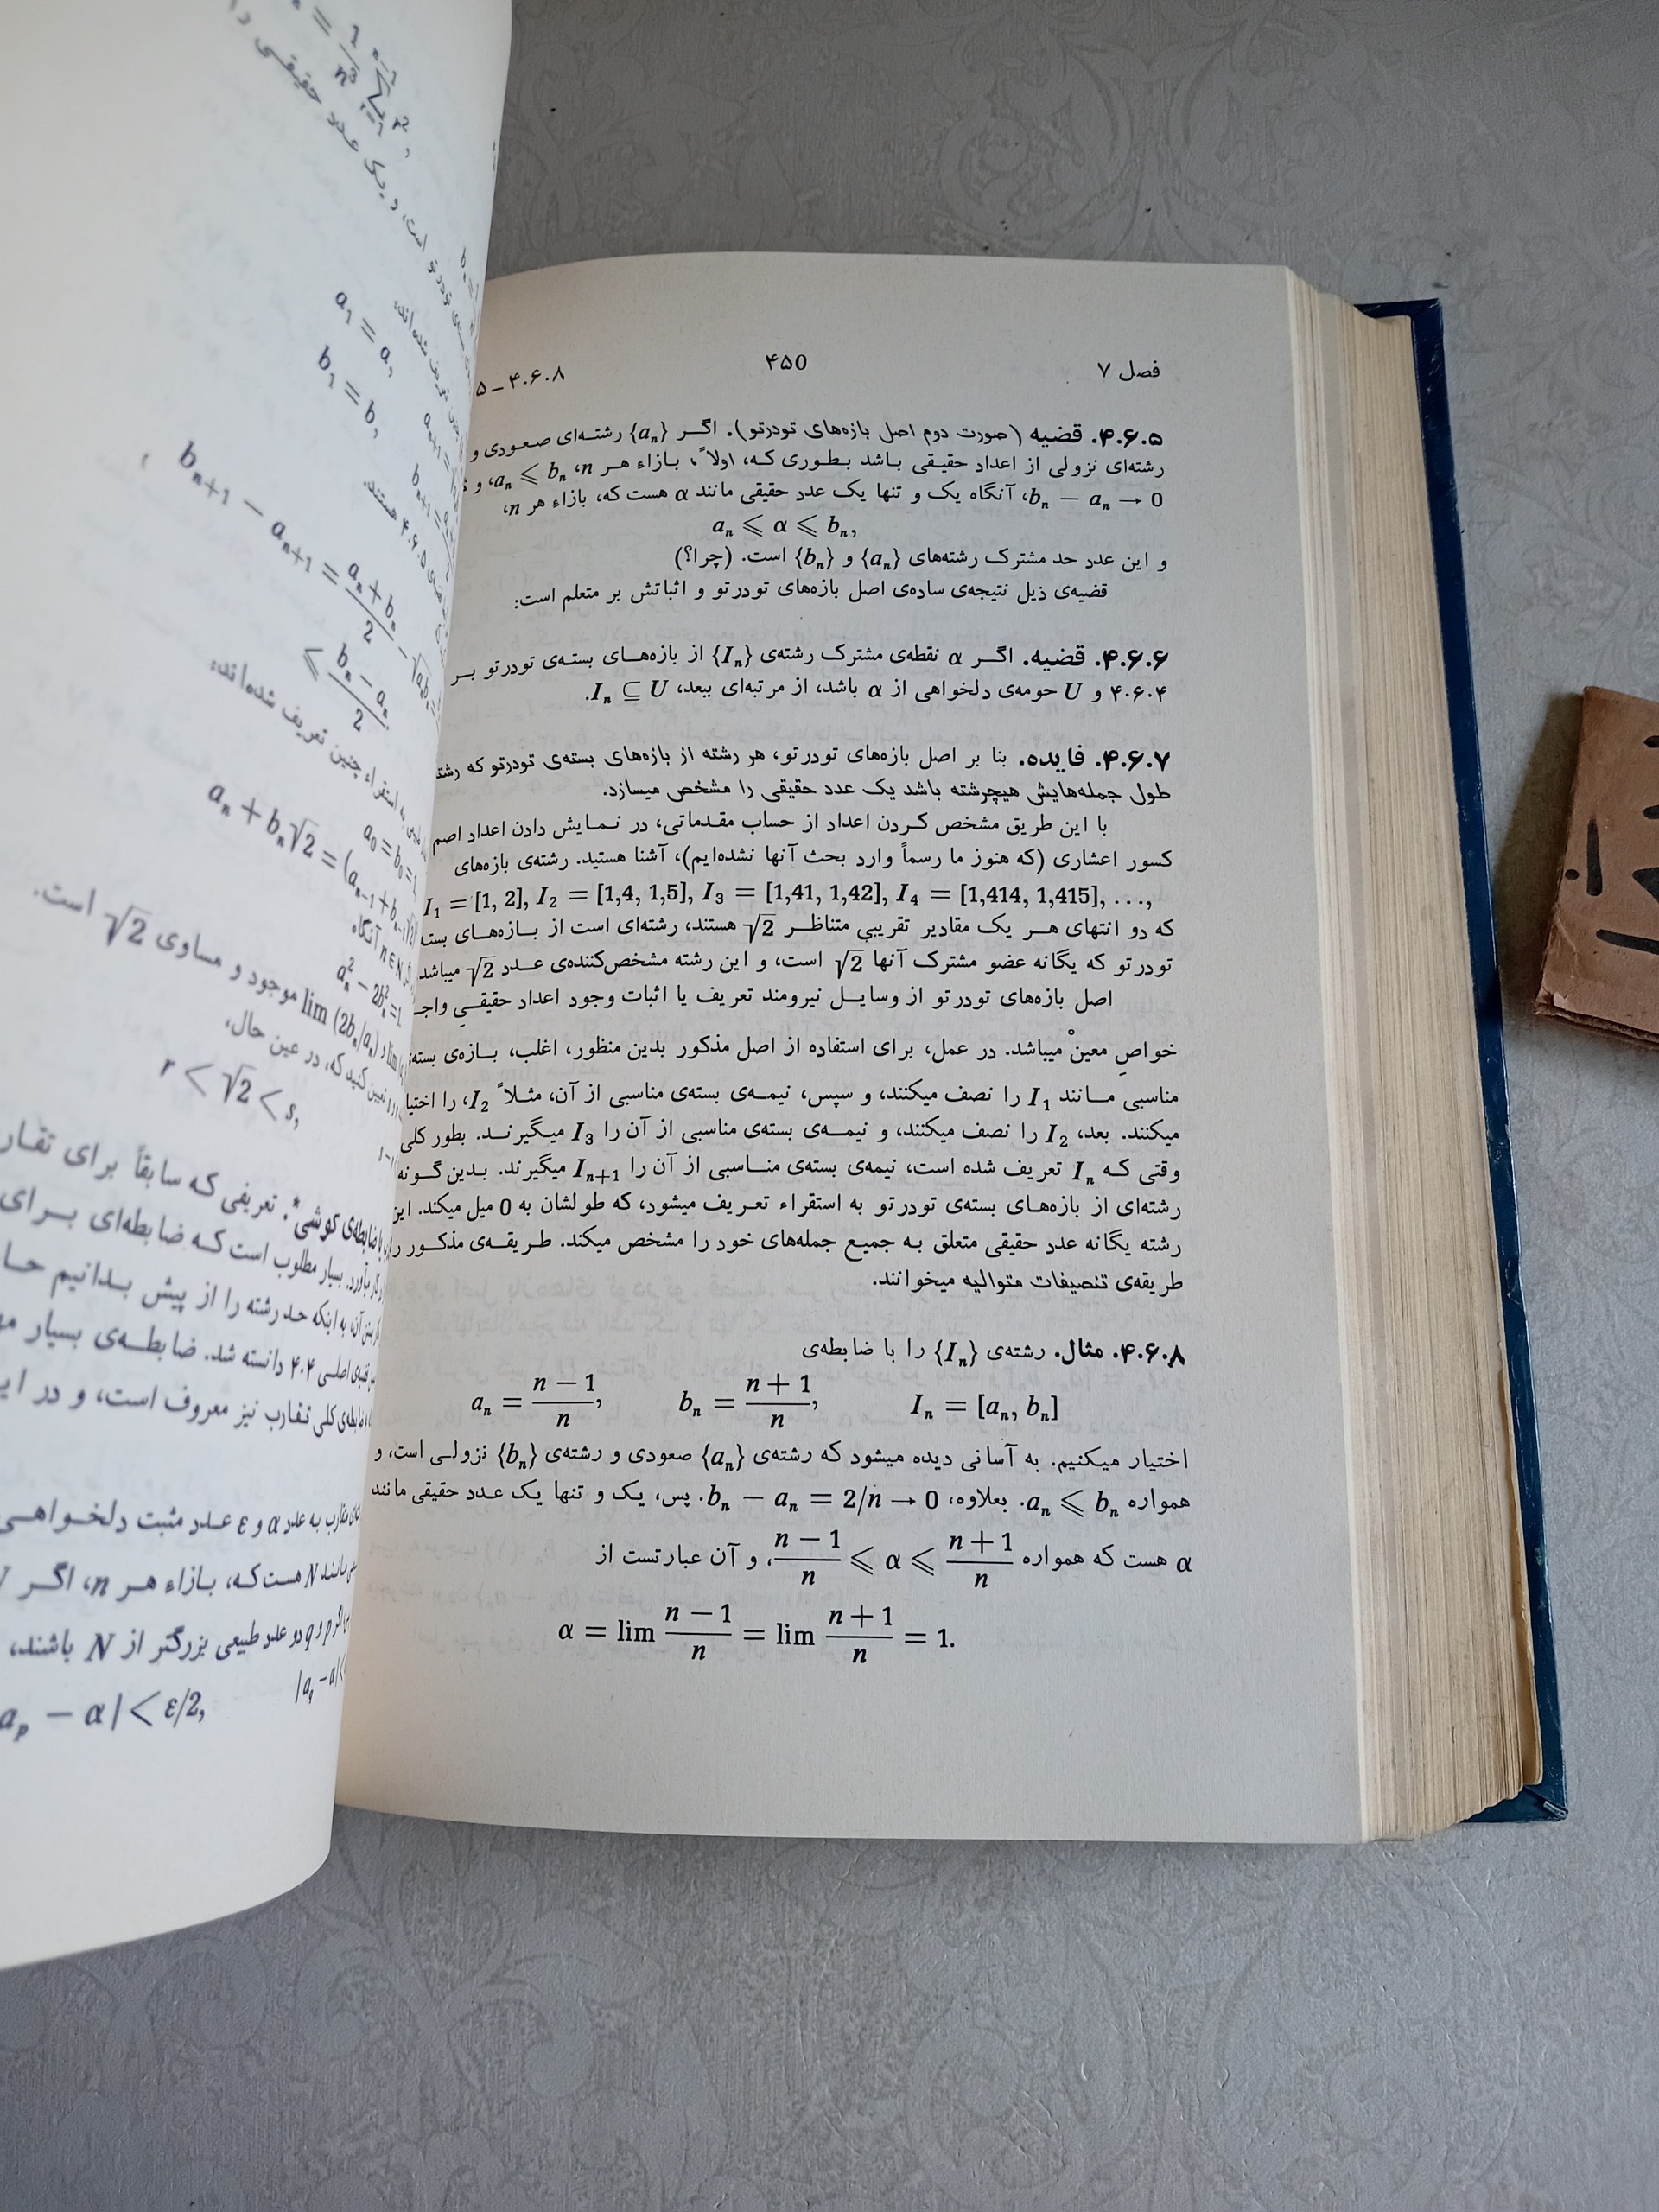 فصل ۷
۴۵۰
۵ – ۴.۶.۸
۴.۶.۵. قضیه (صورت دوم اصل بازه‌های تودرتو). اگر {aₙ} رشته‌ای صعودی و
رشته‌ای نزولی از اعداد حقیقی باشد بطوری که، اولاً، بازاء هر n، aₙ ⩽ bₙ، و
bₙ − aₙ → 0، آنگاه یک و تنها یک عدد حقیقی مانند α هست که، بازاء هر n،
aₙ ⩽ α ⩽ bₙ,
و این عدد حد مشترک رشته‌های {aₙ} و {bₙ} است. (چرا؟)
قضیه‌ی ذیل نتیجه‌ی ساده‌ی اصل بازه‌های تودرتو و اثباتش بر متعلم است:
۴.۶.۶. قضیه. اگر α نقطه‌ی مشترک رشته‌ی {Iₙ} از بازه‌های بسته‌ی تودرتو بر
۴.۶.۴ و U حومه‌ی دلخواهی از α باشد، از مرتبه‌ای ببعد، Iₙ ⊆ U.
۴.۶.۷. فایده. بنا بر اصل بازه‌های تودرتو، هر رشته از بازه‌های بسته‌ی تودرتو که رشته
طول جمله‌هایش هیچرشته باشد یک عدد حقیقی را مشخص میسازد.
با این طریق مشخص کردن اعداد از حساب مقدماتی، در نمایش دادن اعداد اصم
کسور اعشاری (که هنوز ما رسماً وارد بحث آنها نشده‌ایم)، آشنا هستید. رشته‌ی بازه‌های
I₁ = [1, 2], I₂ = [1,4, 1,5], I₃ = [1,41, 1,42], I₄ = [1,414, 1,415], ...,
که دو انتهای هر یک مقادیر تقریبی متناظر √2 هستند، رشته‌ای است از بازه‌های بست
تودرتو که یگانه عضو مشترک آنها √2 است، و این رشته مشخص‌کننده‌ی عدد √2 میباشد
اصل بازه‌های تودرتو از وسایل نیرومند تعریف یا اثبات وجود اعداد حقیقیِ واجد
خواصِ معینْ میباشد. در عمل، برای استفاده از اصل مذکور بدین منظور، اغلب، بازه‌ی بسته‌ی
مناسبی مانند I₁ را نصف میکنند، و سپس، نیمه‌ی بسته‌ی مناسبی از آن، مثلاً I₂، را اختیا
میکنند. بعد، I₂ را نصف میکنند، و نیمه‌ی بسته‌ی مناسبی از آن را I₃ میگیرند. بطور کلی
وقتی که Iₙ تعریف شده است، نیمه‌ی بسته‌ی مناسبی از آن را Iₙ₊₁ میگیرند. بدین گونه
رشته‌ای از بازه‌های بسته‌ی تودرتو به استقراء تعریف میشود، که طولشان به 0 میل میکند. این
رشته یگانه عدد حقیقی متعلق به جمیع جمله‌های خود را مشخص میکند. طریقه‌ی مذکور را
طریقه‌ی تنصیفات متوالیه میخوانند.
۴.۶.۸. مثال. رشته‌ی {Iₙ} را با ضابطه‌ی
aₙ = (n − 1)/n, bₙ = (n + 1)/n, Iₙ = [aₙ, bₙ]
اختیار میکنیم. به آسانی دیده میشود که رشته‌ی {aₙ} صعودی و رشته‌ی {bₙ} نزولی است، و
همواره aₙ ⩽ bₙ. بعلاوه، bₙ − aₙ = 2/n → 0. پس، یک و تنها یک عدد حقیقی مانند
α هست که همواره (n − 1)/n ⩽ α ⩽ (n + 1)/n، و آن عبارتست از
α = lim (n − 1)/n = lim (n + 1)/n = 1.
a₁ = a,
b₁ = b,
bₙ₊₁ − aₙ₊₁ = (aₙ + bₙ)/2 −
⩽ (bₙ − aₙ)/2
به استقراء چنین تعریف شده‌اند:
a₀ = b₀ = 1,
aₙ + bₙ√2 = (aₙ₋₁ + bₙ₋₁
aₙ² − 2bₙ² = 1,
lim (2bₙ/aₙ) موجود و مساوی √2 است.
تعیین کنید که، در عین حال،
r < √2 < s,
ضابطه‌ی کوشی*. تعریفی که سابقاً برای تقار
بسیار مطلوب است که ضابطه‌ای برای
به اینکه حد رشته را از پیش بدانیم
۴.۴ دانسته شد. ضابطه‌ی بسیار
کلی تقارب نیز معروف است، و در
به عدد α و ε عدد مثبت دلخواهی
N هست که، بازاء هر n، اگر
p و q دو عدد طبیعی بزرگتر از N باشند،
aₚ − α| < ε/2,